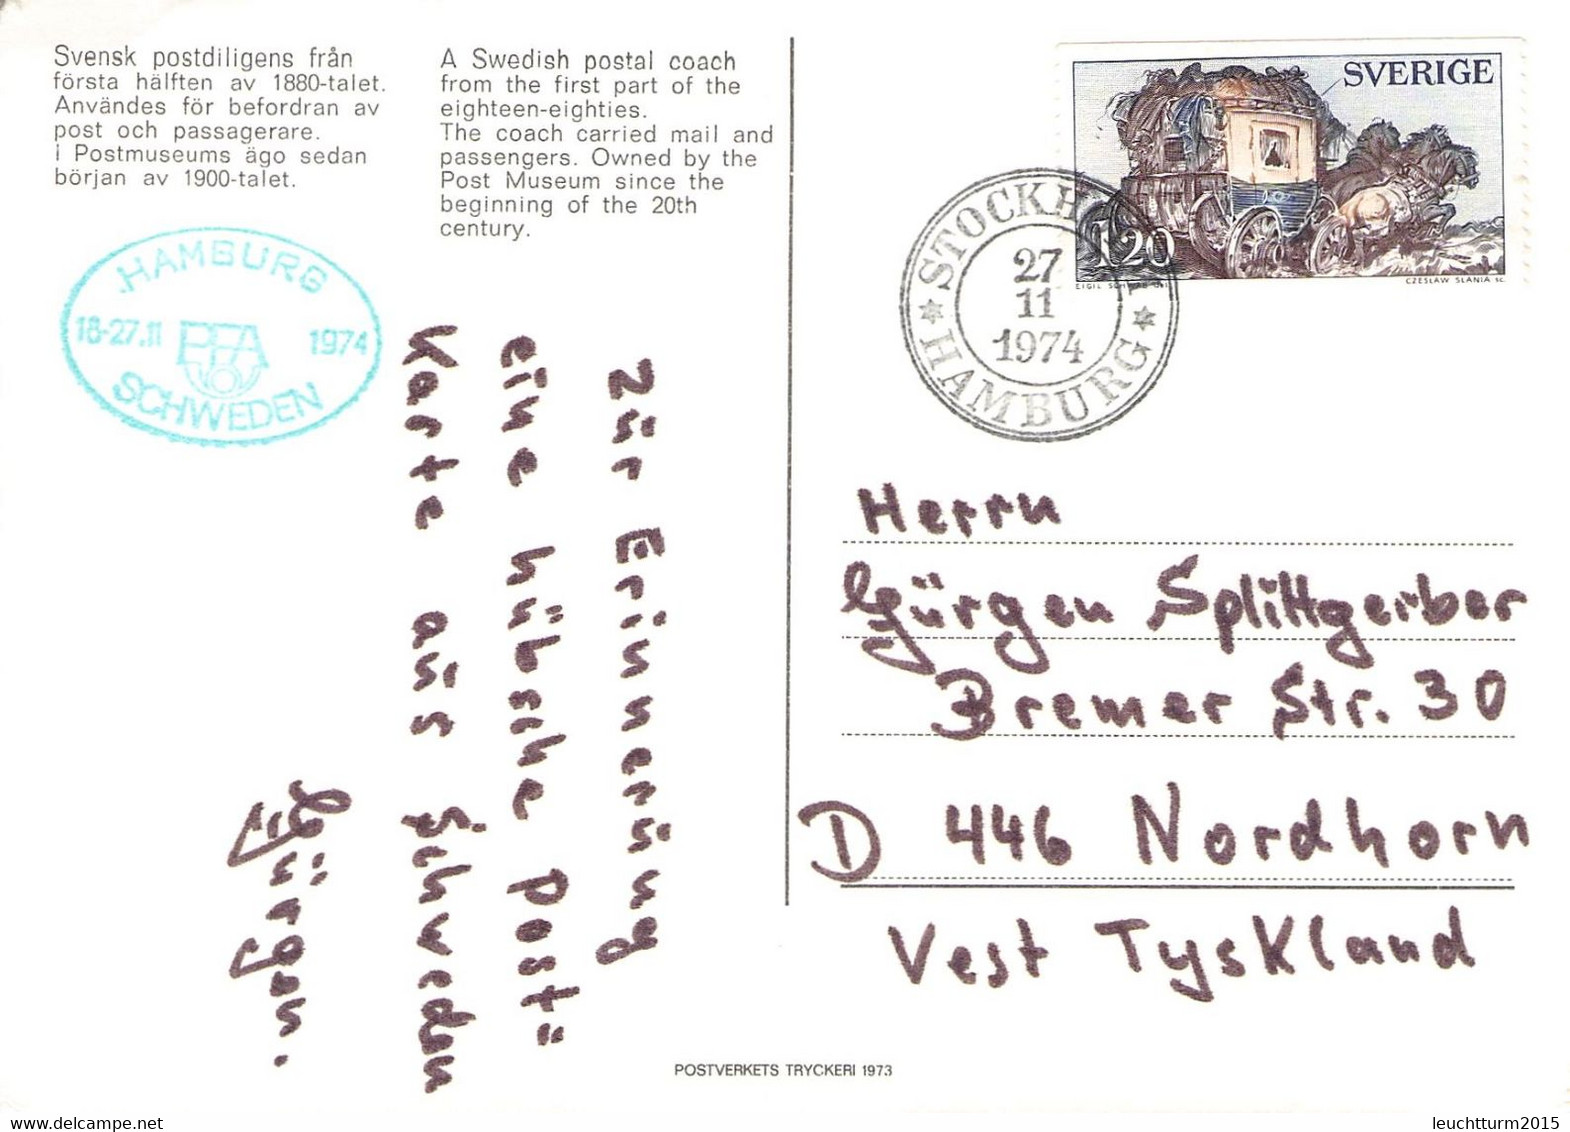 Svensk postdiligens från
första hälften av 1880-talet.
Användes för befordran av
post och passagerare.
i Postmuseums ägo sedan
början av 1900-talet.
A Swedish postal coach
from the first part of the
eighteen-eighties.
The coach carried mail and
passengers. Owned by the
Post Museum since the
beginning of the 20th
century.
SVERIGE
120
CZESŁAW SŁANIA sc.
STOCKH
27
11
1974
HAMBURG
HAMBURG
18-27.11 PFA 1974
SCHWEDEN
Zur Erinnerung
eine hübsche Post=
Karte aus Schweden
Jürgen.
Herrn
Jürgen Splittgerber
Bremer Str. 30
D 446 Nordhorn
Vest Tyskland
POSTVERKETS TRYCKERI 1973
leuchtturm2015